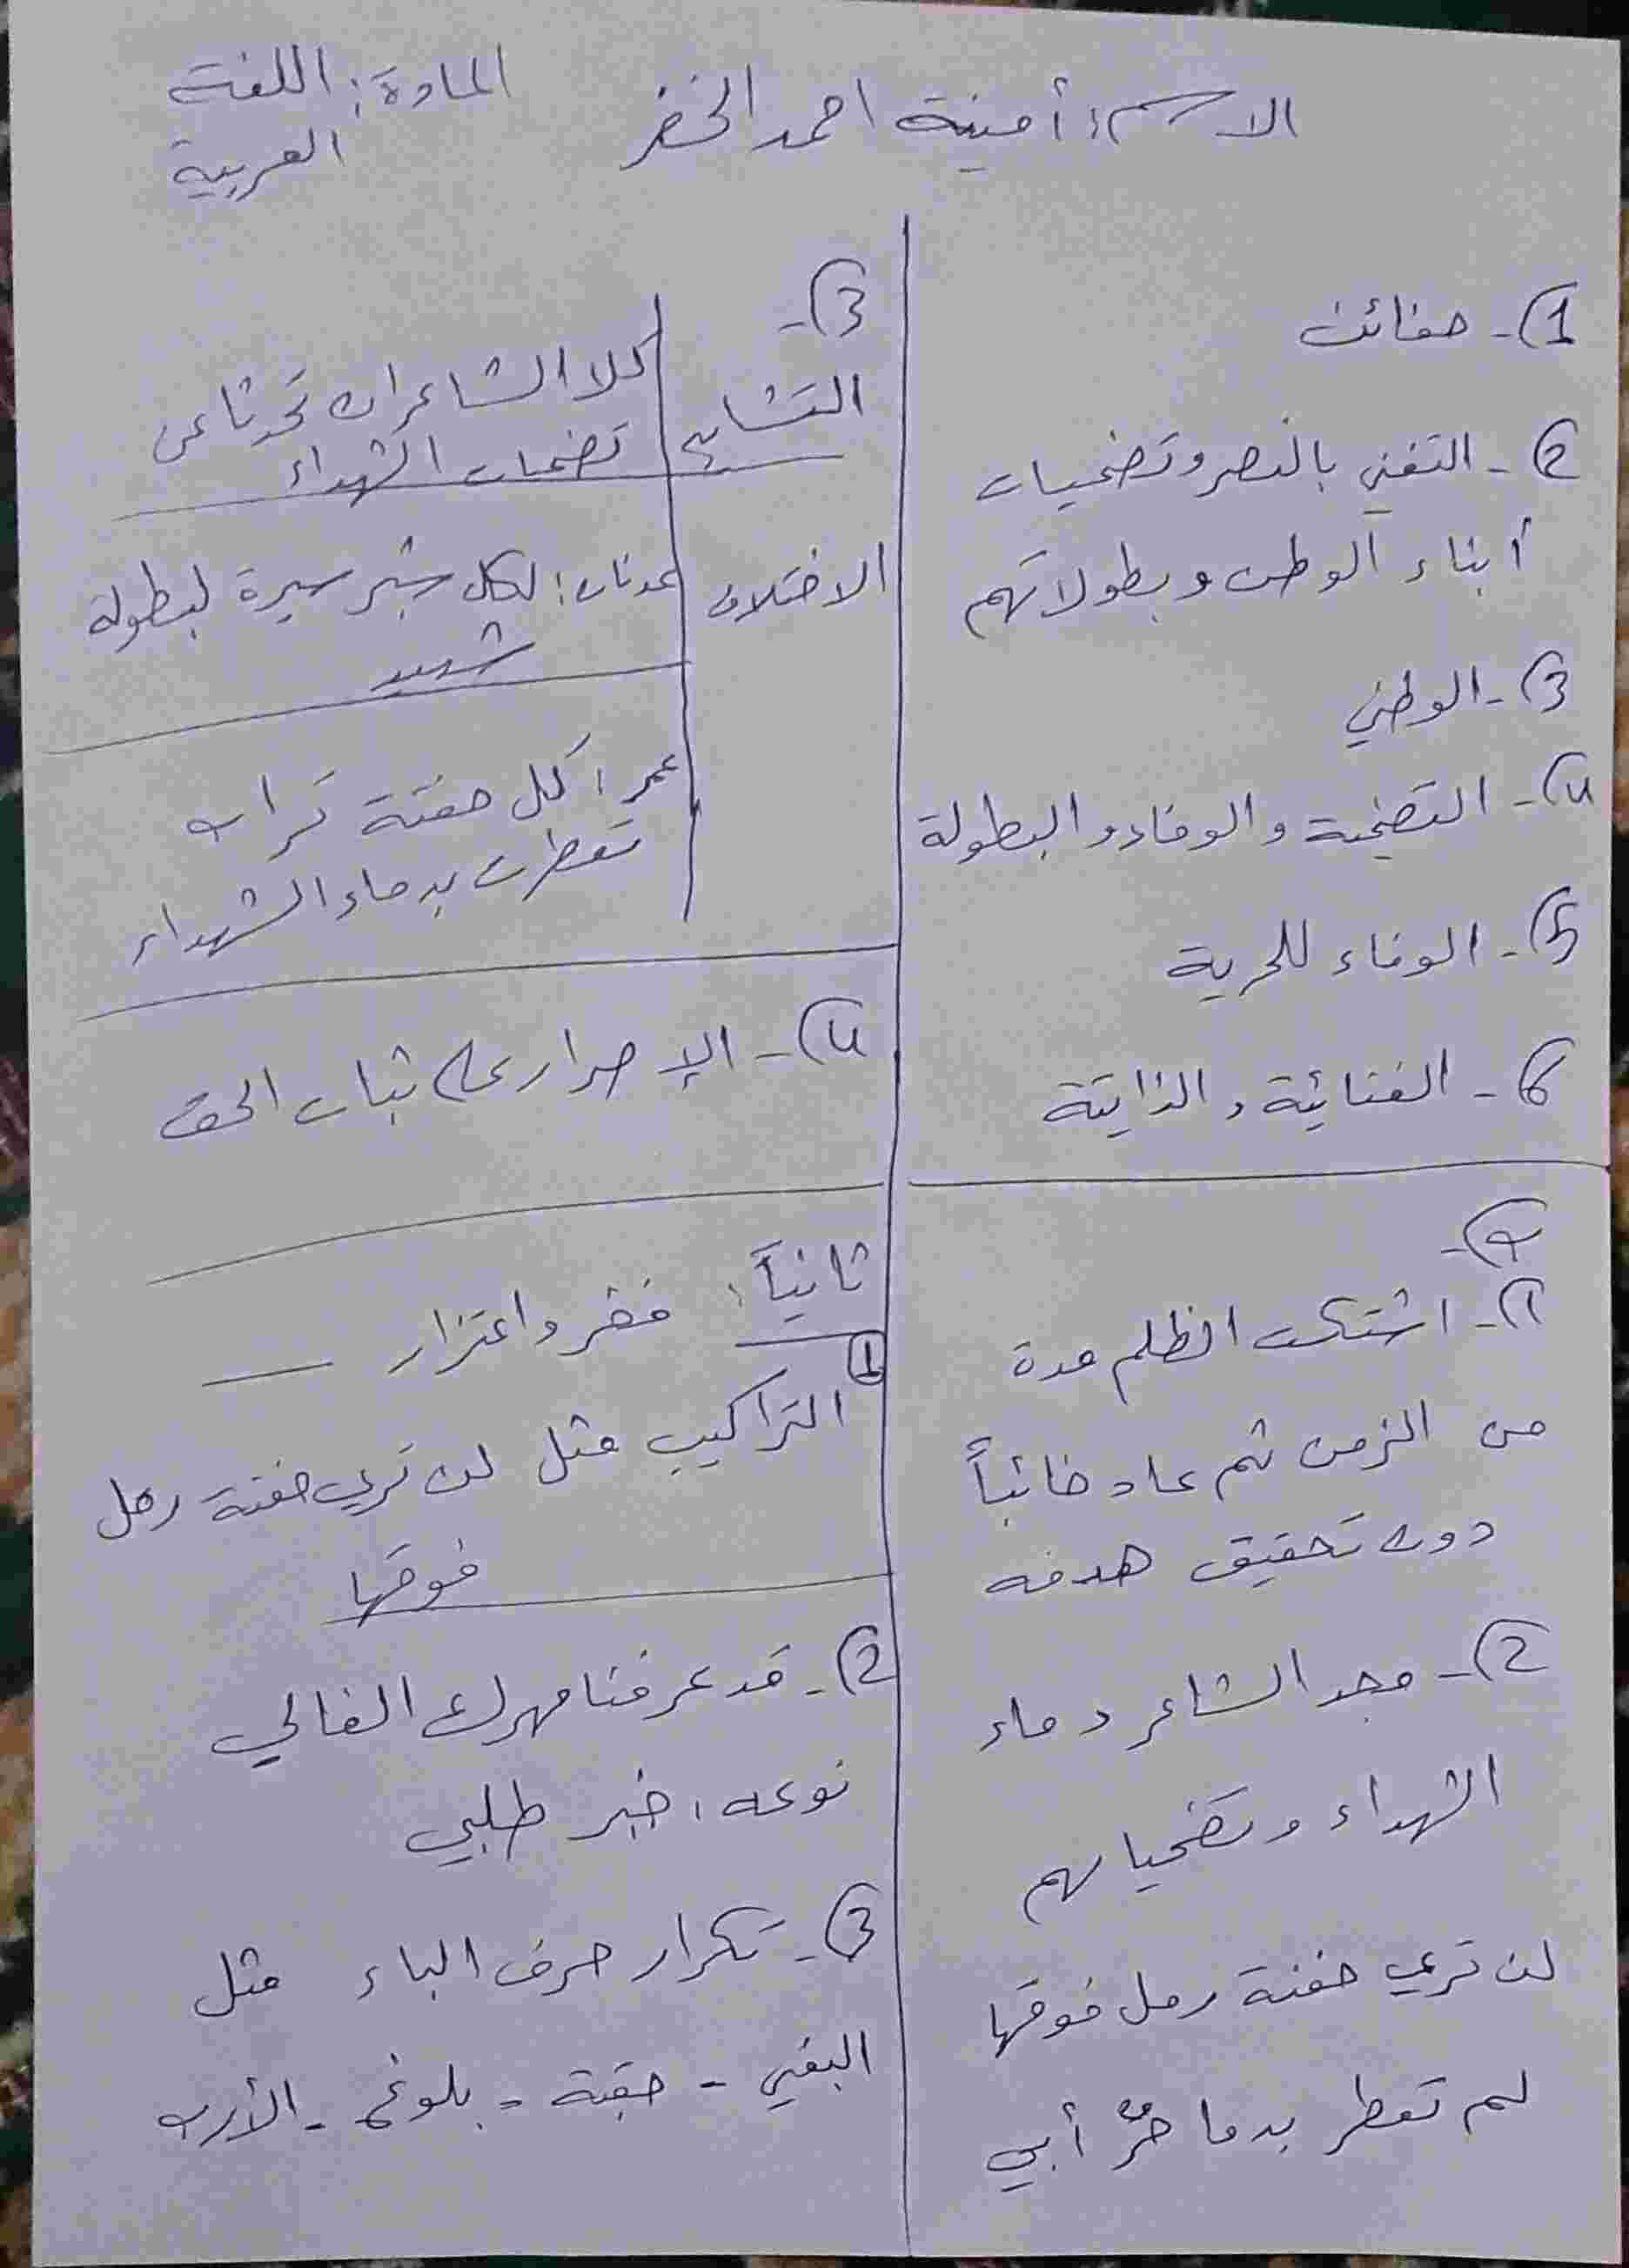 الاسم: أمينة احمد الخضر
المادة: اللغة
العربية
1)- حفائن
2)- التغني بالنصر وتضحيات
أبناء الوطن وبطولاتهم
3)- الوطني
4)- التضحية والوفاء و البطولة
5)- الوفاء للحرية
6)- الغنائية و الذاتية
ب)-
1)- اشتكت الظلم مدة
من الزمن ثم عاد خائباً
دون تحقيق هدفه
2)- مجد الشاعر دماء
الشهداء و تضحياتهم
لن تري حفنة رمل فوقها
لم تعطر بدما حرٍّ أبي
3)-
التشابه
كلا الشاعران تحدثا عن
تضحيات الشهداء
الاختلاف
عدنان: لكل شبر سيرة لبطولة
شهيد
عمر: كل حفنة تراب
تعطرت بدماء الشهداء
4)- الإصرار على ثبات الحق
ثانياً: فخر واعتزار
1
التراكيب مثل لن تري حفنة رمل
فوقها
2)- قد عرفنا مهرك الغالي
نوعه: خبر طلبي
3)- تكرار حرف الباء مثل
البغي - حقبة - بلوغ - الأرب